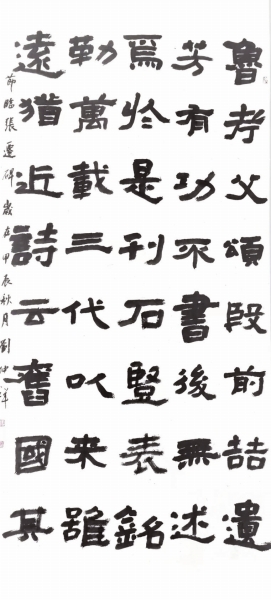 魯考父頌殷前喆遺
芳有功不書後無述
焉於是刊石豎表銘
勒萬載三代以来雖
遠猶近詩云舊國其
節臨張遷碑歲在甲辰秋月劉仲